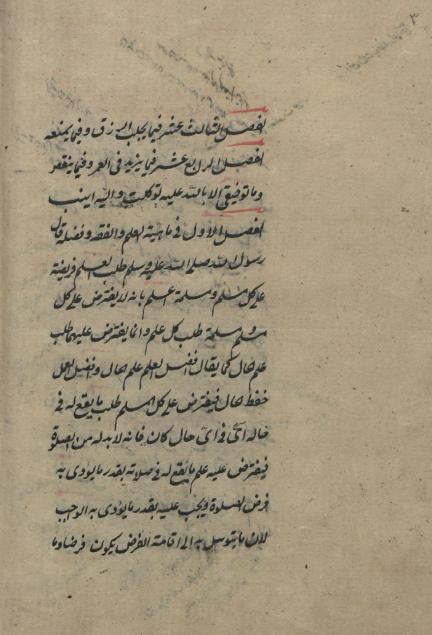 ٣
الفصل الثالث عشر فيما يجلب الرزق وفيما يمنعه
الفصل الرابع عشر فيما يزيد فى العمر وفيما ينقص
وما توفيقى الا بالله عليه توكلت واليه انيب
الفصل الاول فى ماهية العلم والفقه وفضله قال
رسول الله صلى الله عليه وسلم طلب العلم فريضة
على كل مسلم ومسلمة اعلم بانه لا يفترض على كل
مسلم ومسلمة طلب كل علم وانما يفترض عليهما طلب
علم الحال كما يقال افضل العلم علم الحال وافضل العمل
حفظ الحال فيفترض على كل مسلم طلب ما يقع له فى
حاله اى فى اى حال كان فانه لا بد له من الصلوة
فيفترض عليه علم ما يقع له فى صلاته بقدر ما يؤدى به
فرض الصلوة ويجب عليه بقدر ما يؤدى به الواجب
لان ما يتوسل به الى اقامة الفرض يكون فرضا وما